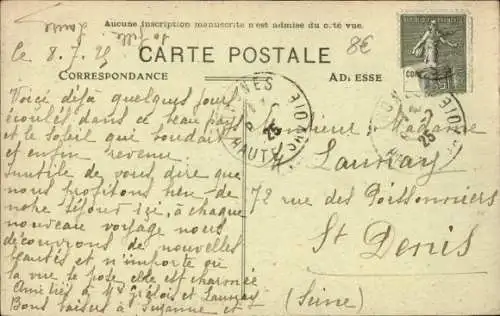 Aucune inscription manuscrite n'est admise du côté vue.
Laure
sa fille
8€
le 8.7.25
CARTE POSTALE
CORRESPONDANCE
ADRESSE
Voici déjà quelques jours
écoulés dans ce beau pays
et le soleil qui soudait
et enfin revenu.
Inutile de vous dire que
nous profitons bien de
notre séjour ici, à chaque
nouveau voyage nous
découvrons de nouvelles
beautés et n'importe où
la vue se pose, elle est charmée
Amitiés à Mr Launay
Bons baisers à Suzanne et
HTE SAVOIE
25
Monsieur Madame
Launay
72 rue des Poissonniers
St Denis
(Seine)